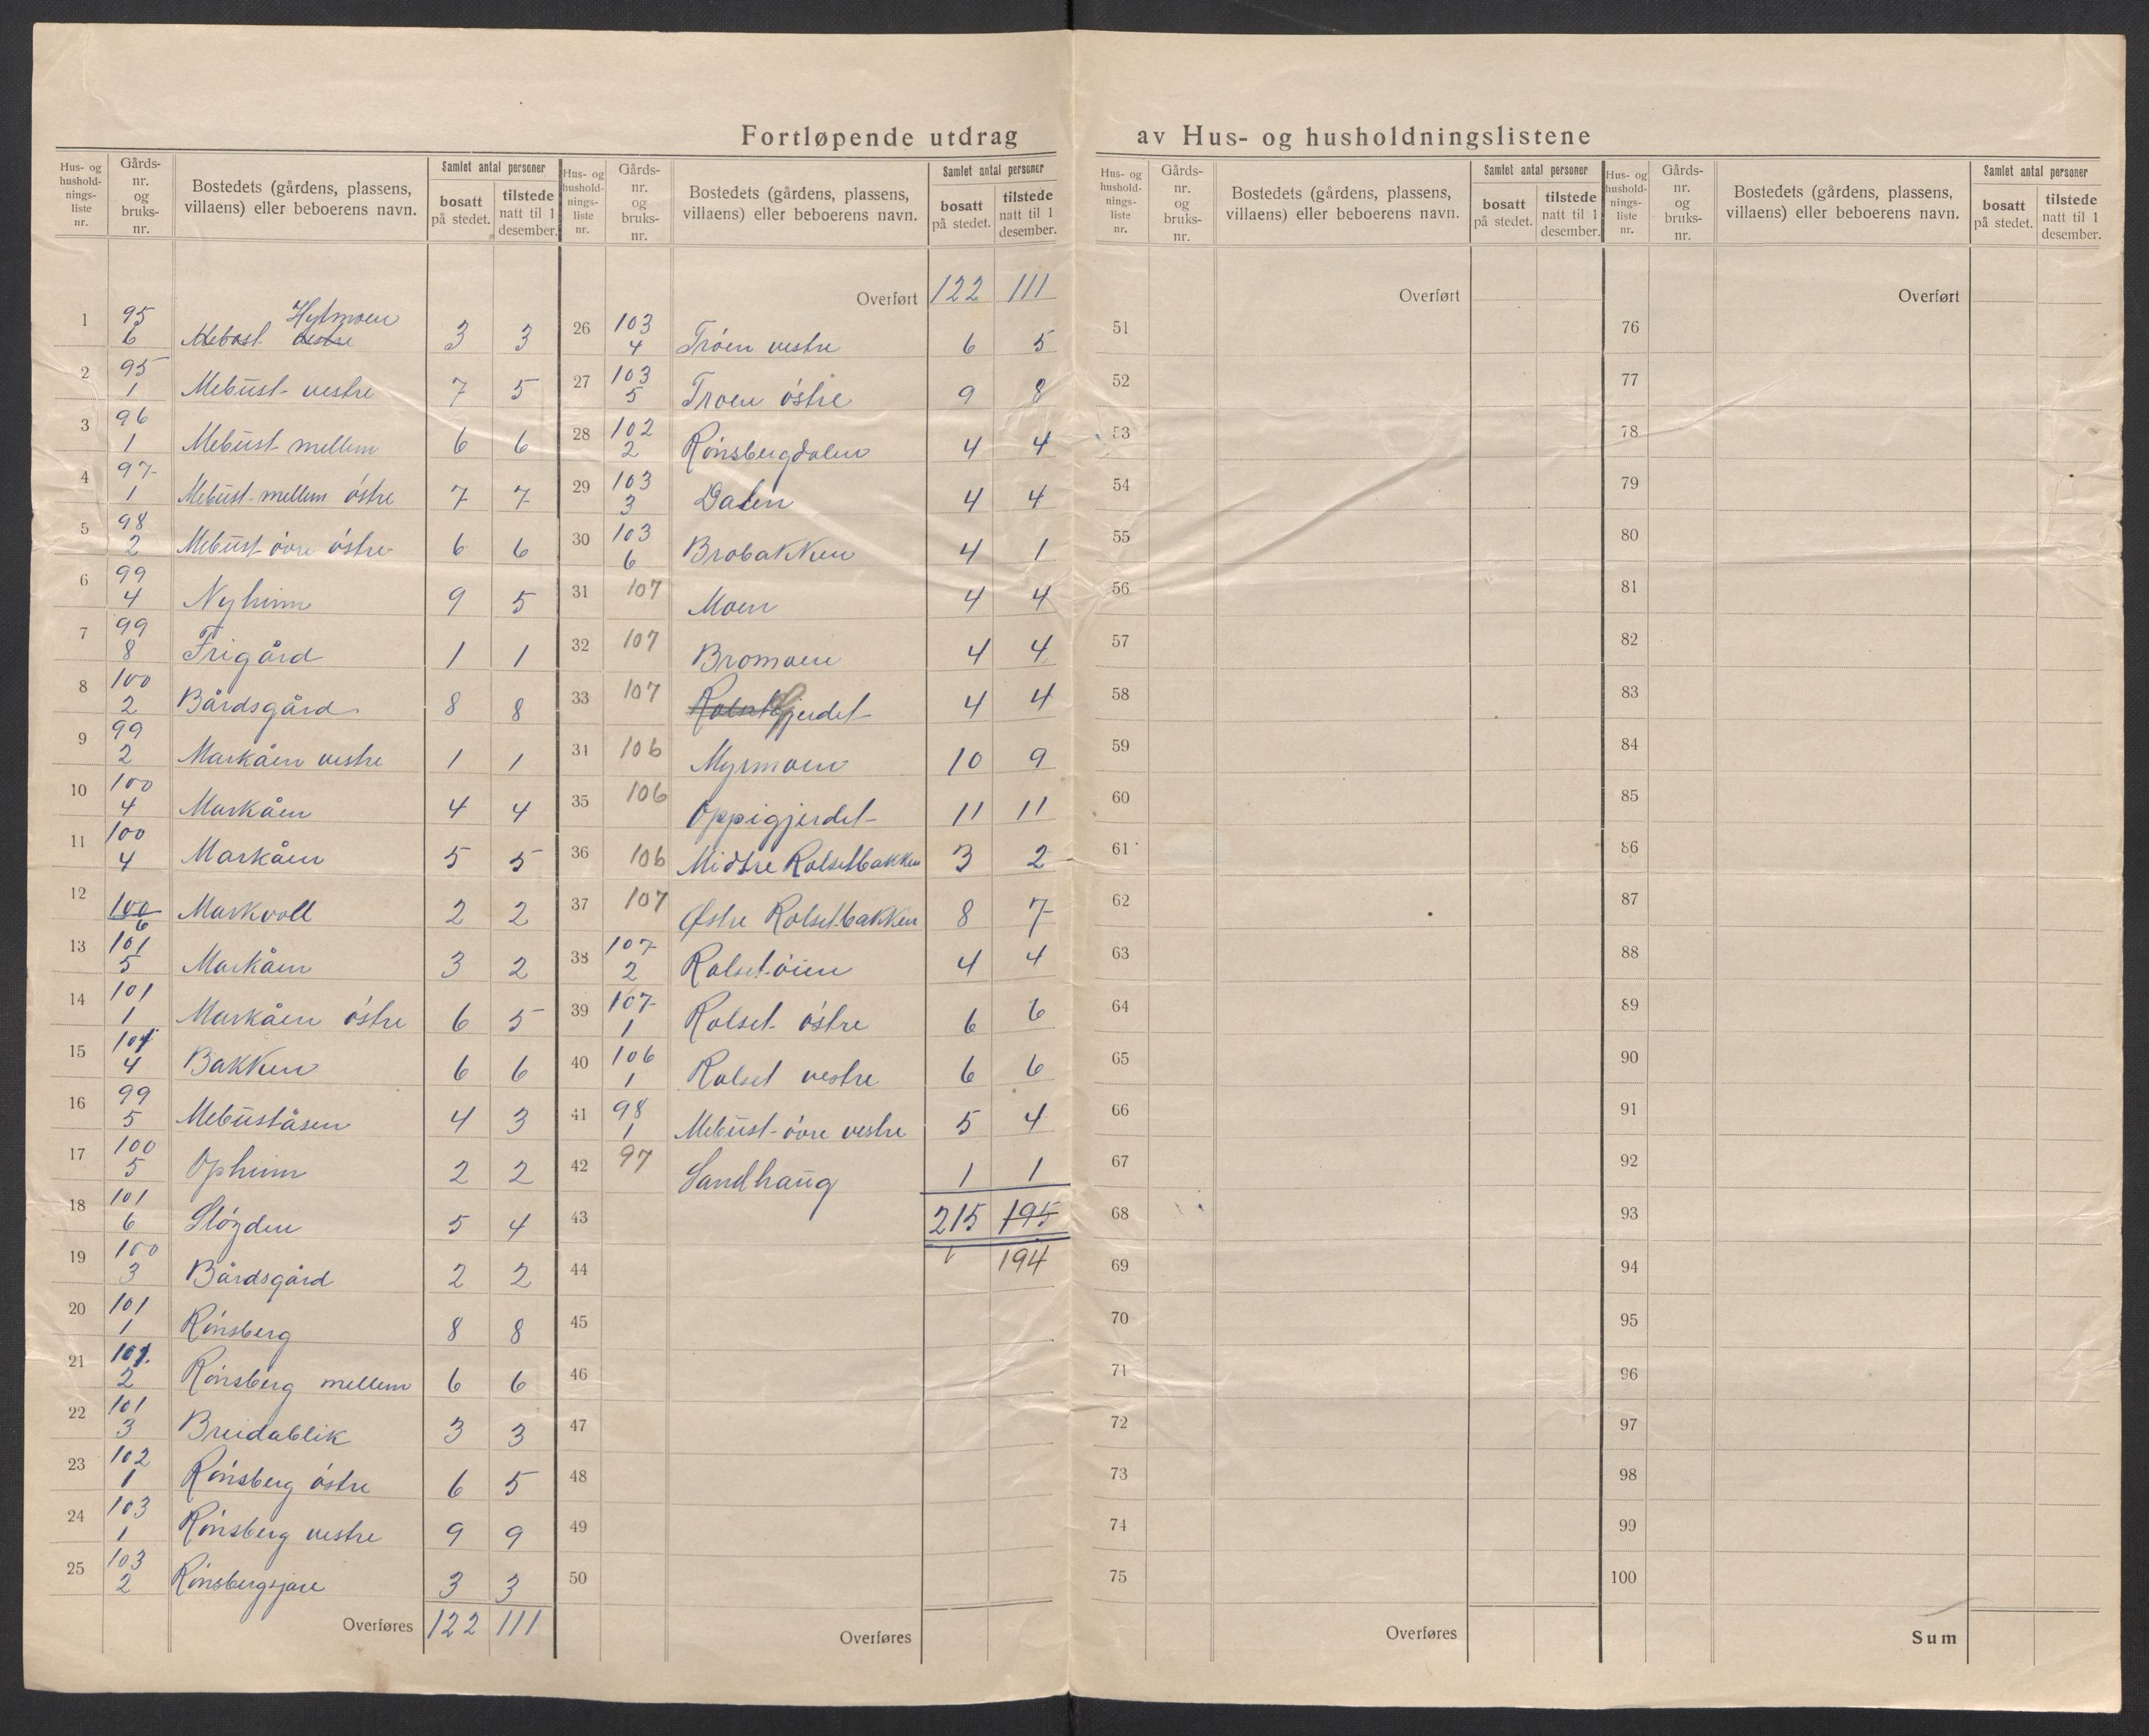 Fortløpende utdrag av Hus- og husholdningslistene
Hus- og husholdnings-liste nr. | Gårds-nr. og bruks-nr. | Bostedets (gårdens, plassens, villaens) eller beboerens navn. | Samlet antal personer | bosatt på stedet. | tilstede natt til 1 desember.
1 95 6 Mebost vestre Hylmoen 3 3
2 95 1 Mebust vestre 7 5
3 96 1 Mebust mellem 6 6
4 97 1 Mebust mellem østre 7 7
5 98 2 Mebust øvre østre 6 6
6 99 4 Nyheim 9 5
7 99 8 Frigård 1 1
8 100 2 Bårdsgård 8 8
9 99 2 Markåen vestre 1 1
10 100 4 Markåen 4 4
11 100 4 Markåen 5 5
12 100 6 Markvoll 2 2
13 101 5 Markåen 3 2
14 101 1 Markåen østre 6 5
15 101 4 Bakken 6 6
16 99 5 Mebuståsen 4 3
17 100 5 Opheim 2 2
18 101 6 Sløgden 5 4
19 100 3 Bårdsgård 2 2
20 101 1 Rønsberg 8 8
21 101 2 Rønsberg mellem 6 6
22 101 3 Breidablik 3 3
23 102 1 Rønsberg østre 6 5
24 103 1 Rønsberg vestre 9 9
25 103 2 Rønsbergsjare 3 3
Overføres 122 111
Hus- og husholdnings-liste nr. | Gårds-nr. og bruks-nr. | Bostedets (gårdens, plassens, villaens) eller beboerens navn. | Samlet antal personer | bosatt på stedet. | tilstede natt til 1 desember.
Overført 122 111
26 103 4 Trøen vestre 6 5
27 103 5 Trøen østre 9 8
28 102 2 Rønsbergdalen 4 4
29 103 3 Dalen 4 4
30 103 6 Brobakken 4 1
31 107 Moen 4 4
32 107 Bromoen 4 4
33 107 Rolset Gjerdet 4 4
34 106 Myrmoen 10 9
35 106 Oppigjerdet 11 11
36 106 Midtre Rolsetbakken 3 2
37 107 Østre Rolsetbakken 8 7
38 107 2 Rolsetøien 4 4
39 107 1 Rolset østre 6 6
40 106 1 Rolset vestre 6 6
41 98 1 Mebust øvre vestre 5 4
42 97 Sandhaug 1 1
43 215 195
44 194
45
46
47
48
49
50
Overføres
Hus- og husholdnings-liste nr. | Gårds-nr. og bruks-nr. | Bostedets (gårdens, plassens, villaens) eller beboerens navn. | Samlet antal personer | bosatt på stedet. | tilstede natt til 1 desember.
Overført
51
52
53
54
55
56
57
58
59
60
61
62
63
64
65
66
67
68
69
70
71
72
73
74
75
Overføres
Hus- og husholdnings-liste nr. | Gårds-nr. og bruks-nr. | Bostedets (gårdens, plassens, villaens) eller beboerens navn. | Samlet antal personer | bosatt på stedet. | tilstede natt til 1 desember.
Overført
76
77
78
79
80
81
82
83
84
85
86
87
88
89
90
91
92
93
94
95
96
97
98
99
100
Sum